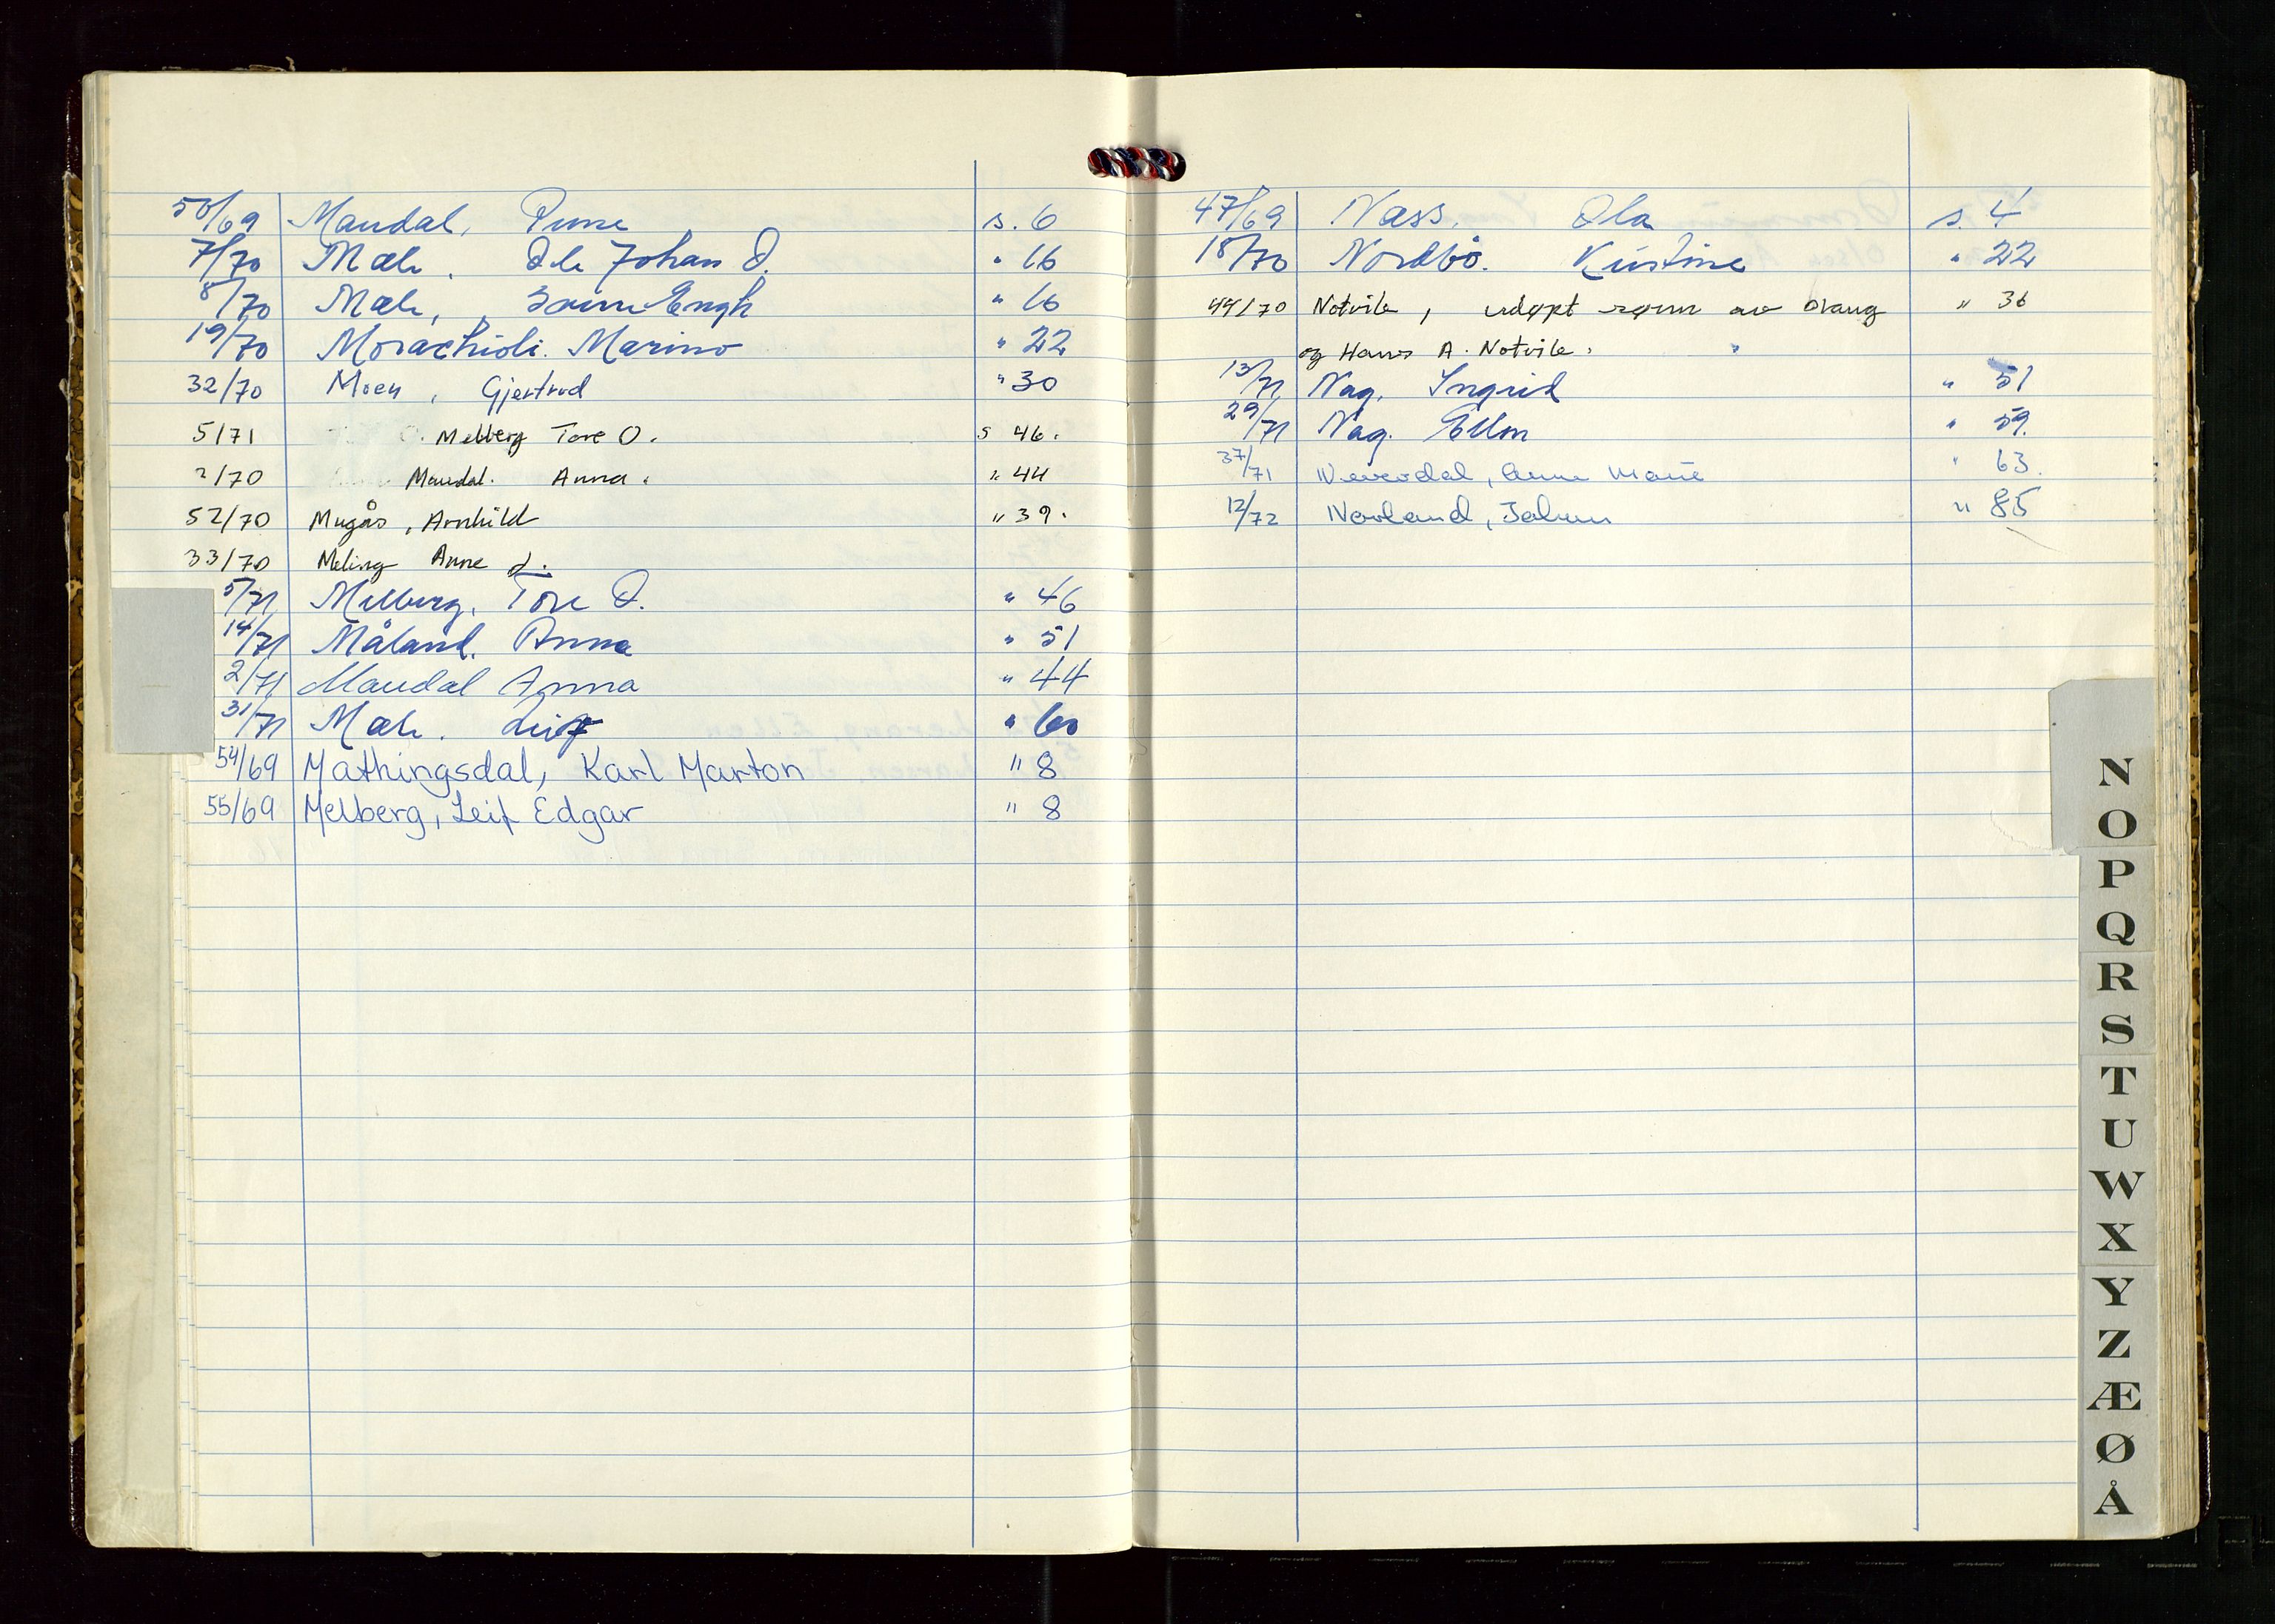 50/69 Maudal, Rune s. 6
7/70 Mæle. Ole Johan O. " 16
8/70 Mæle, Engh " 16
19/70 Morachioli. Marino " 22
32/70 Moen, Gjertrud " 30
5/71 Melberg Tore O. s 46.
2/70 Maudal. Anna. " 44
52/70 Mugås, Arnhild " 39.
33/70 Meling Anne L.
5/71 Melberg, Tore O. " 46
14/71 Måland. Anna " 51
2/71 Maudal Anna " 44
31/71 Mæle. Leif " 60
54/69 Mathingsdal, Karl Marton " 8
55/69 Melberg, Leif Edgar " 8
47/69 Næss. Ola s. 4
18/70 Nordbö. Kristine " 22
44/70 Notvik, udøpt sønn av Oraug " 36
og Hans A. Notvik. "
13/71 Nag. Ingrid " 51
29/71 Nag. Ellen " 59.
37/71 Neverdal, Anne Marie " 63.
12/72 Norland, " 85
N
O
P
Q
R
S
T
U
W
X
Y
Z
Æ
Ø
Å